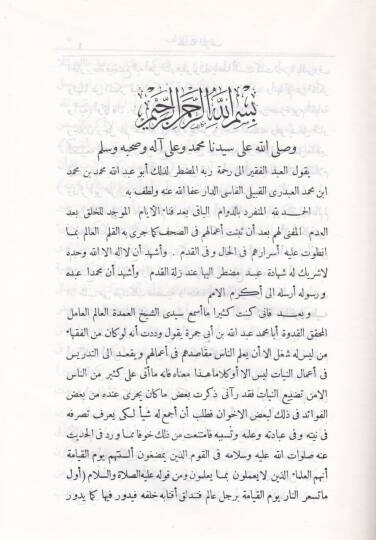 بسم الله الرحمن الرحيم
وصلى الله على سيدنا محمد وعلى آله وصحبه وسلم
يقول العبد الفقير الى رحمة ربه المضطر لذلك أبو عبد الله محمد بن محمد
ابن محمد العبدرى القبيلى الفاسى الدار عفا الله عنه ولطف به
الحمد لله المنفرد بالدوام الباقى بعد فناء الايام الموجد للخلق بعد
العدم المفنى لهم بعد أن ثبتت أعمالهم فى الصحف كما جرى به القلم العالم بما
انطوت عليه أسرارهم فى الحال وفى القدم . وأشهد أن لا اله الا الله وحده
لاشريك له شهادة عبد مضطر اليها عند زلة القدم وأشهد أن محمدا عبده
ورسوله أرسله الى أكرم الامم
وبعد فانى كنت كثيرا ما أسمع سيدى الشيخ العمدة العالم العامل
المحقق القدوة أبا محمد عبد الله بن أبى جمرة يقول وددت أنه لو كان من الفقهاء
من ليس له شغل الا أن يعلم الناس مقاصدهم فى أعمالهم ويقعد الى التدريس
فى أعمال النيات ليس الا أو كلاما هذا معناه فانه ما أتى على كثير من الناس
الا من تضييع النيات فقد رآنى ذكرت بعض ما كان يجرى عنده من بعض
الفوائد فى ذلك لبعض الاخوان فطلب أن أجمع له شيأ لكى يعرف تصرفه
فى نيته وفى عبادته وعلمه وتسببه فامتنعت من ذلك خوفا مما ورد فى الحديث عنه
صلوات الله عليه وسلامه فى القوم الذين يمضغون ألسنتهم يوم القيامة
أنهم العلماء الذين لا يعملون بما يعلمون ومن قوله عليه الصلاة والسلام (أول
ما تسعر النار يوم القيامة برجل عالم فتندلق أقتابه خلفه فيدور فيها كما يدور